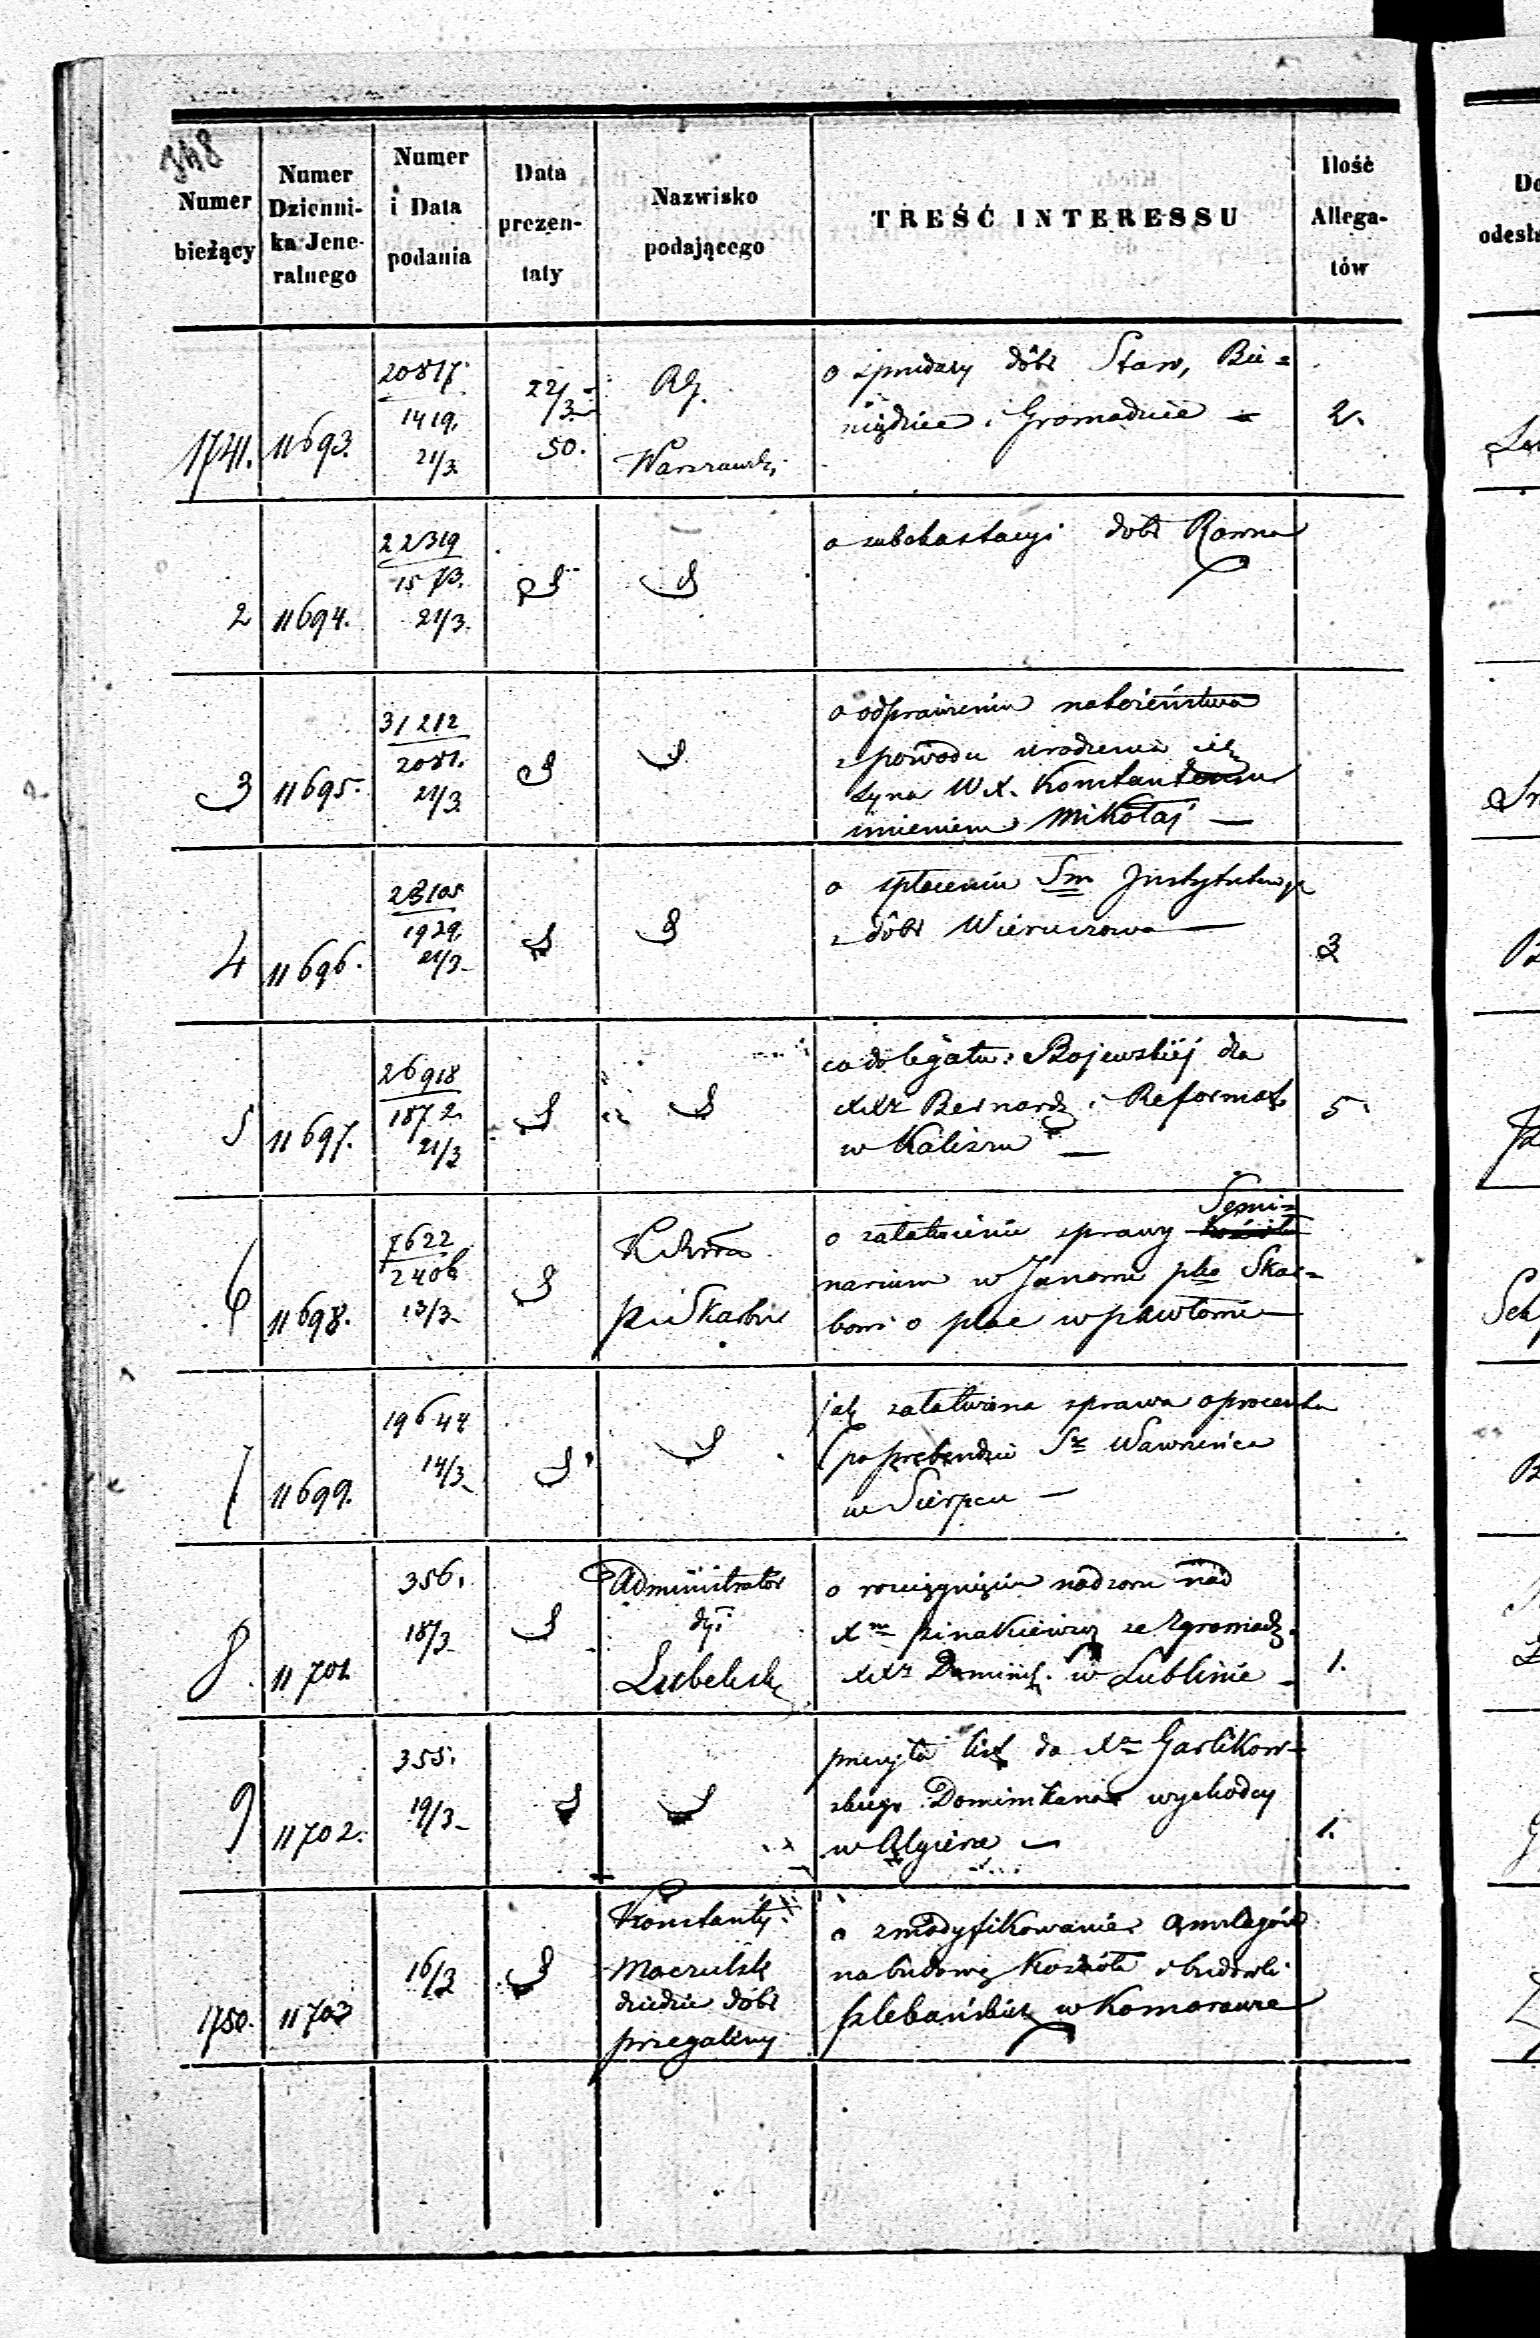 348
Numer bieżący
Numer Dzienni-ka Jene-ralnego
Numer i Data podania
Data prezen-taty
Nazwisko podającego
TREŚĆ INTERESSU
Ilość Allega-tów
1741. 11693. 20817. 1419. 21/3. 22/3 50. RG. Warszawski
o sprzedaży dóbr Staw, Bie=
niądzice i Gromadzice — 2.
2 11694. 22319 1573. 21/3.
o subhastacyi dóbr Rawna
3 11695. 31212 2081. 21/3
o odprawieniu nabożeństwa
z powodu urodzenia się
Syna W.X. Konstantemu
imieniem Mikołaj —
4 11696. 23105 1929. 21/3
o spłaceniu Sm Instytutowych
z dóbr Wieruszowa — 3
5 11697. 26918 1872. 21/3
co do legatu Bojewskiéj dla
XXr Bernard. i Reformat.
w Kaliszu — 5.
6 11698. 7622 2406 13/3 Skarbu
o załatwienie sprawy Semi=
narium w Janowie pko Skar=
bowi o plac w Pawłowie
7 11699. 19644 14/3
jak załatwiona sprawa o procenta
po prebendzie Sr Wawrzeńca
w Sierpcu —
8. 11701. 356. 18/3 Administrator
dyi
Lubelski
o rozciągnięcie nadzoru nad
Xm ze Zgromadz.
XXr Dominik. w Lublinie — 1.
9 11702. 355. 19/3
przesyła list do Xa Garlikow-
skiego Dominikana wychodcy
w Algierze — 1.
1750. 11703 16/3 Konstanty
Maczulski
dziedzic dóbr
Przegaliny
o zmodyfikowanie anszlagów
na budowę Kościoła i budowli
plebańskich w Komarowce